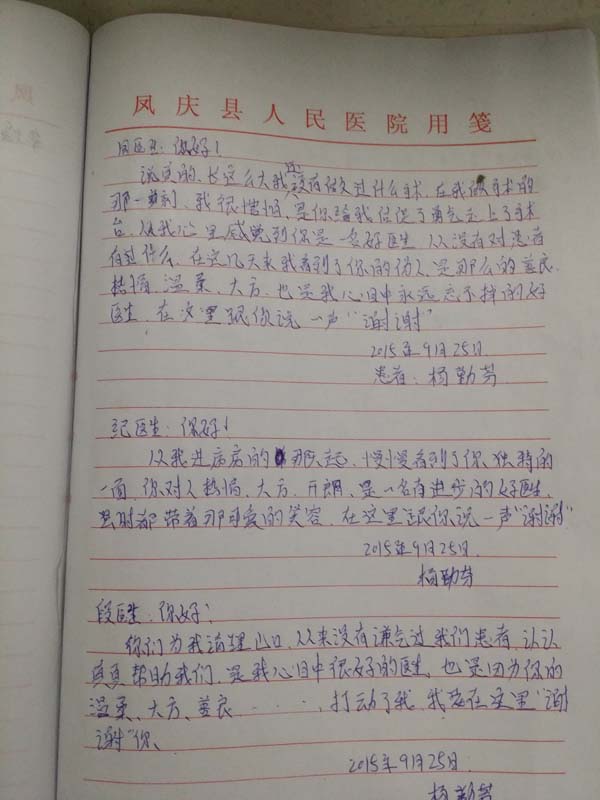 凤庆县人民医院用笺
医生：你好！
说真的，长这么大我还没有做过什么手术，在我做手术的
那一刻，我很惧怕，是你给我信心了勇气走上了手术
台，从我心里感觉到你是一名好医生，从没有对患者
有过什么，在这几天来我看到了你的为人，是那么的善良、
热情、温柔、大方，也是我心目中永远忘不掉的好
医生，在这里跟你说一声“谢谢”
2015年9月25日
患者：杨勤芳
纪医生：你好！
从我进病房的那天起，慢慢看到了你独特的
一面，你对人热情、大方、开朗，是一名有进步的好医生，
时都带着那可爱的笑容，在这里跟你说一声“谢谢”
2015年9月25日
杨勤芳
段医生：你好！
你们为我清理伤口，从来没有嫌气过我们患者，认认
真真帮助我们，是我心目中很好的医生，也是因为你的
温柔、大方、善良······打动了我，我要在这里“谢
谢”你、
2015年9月25日
杨勤芳